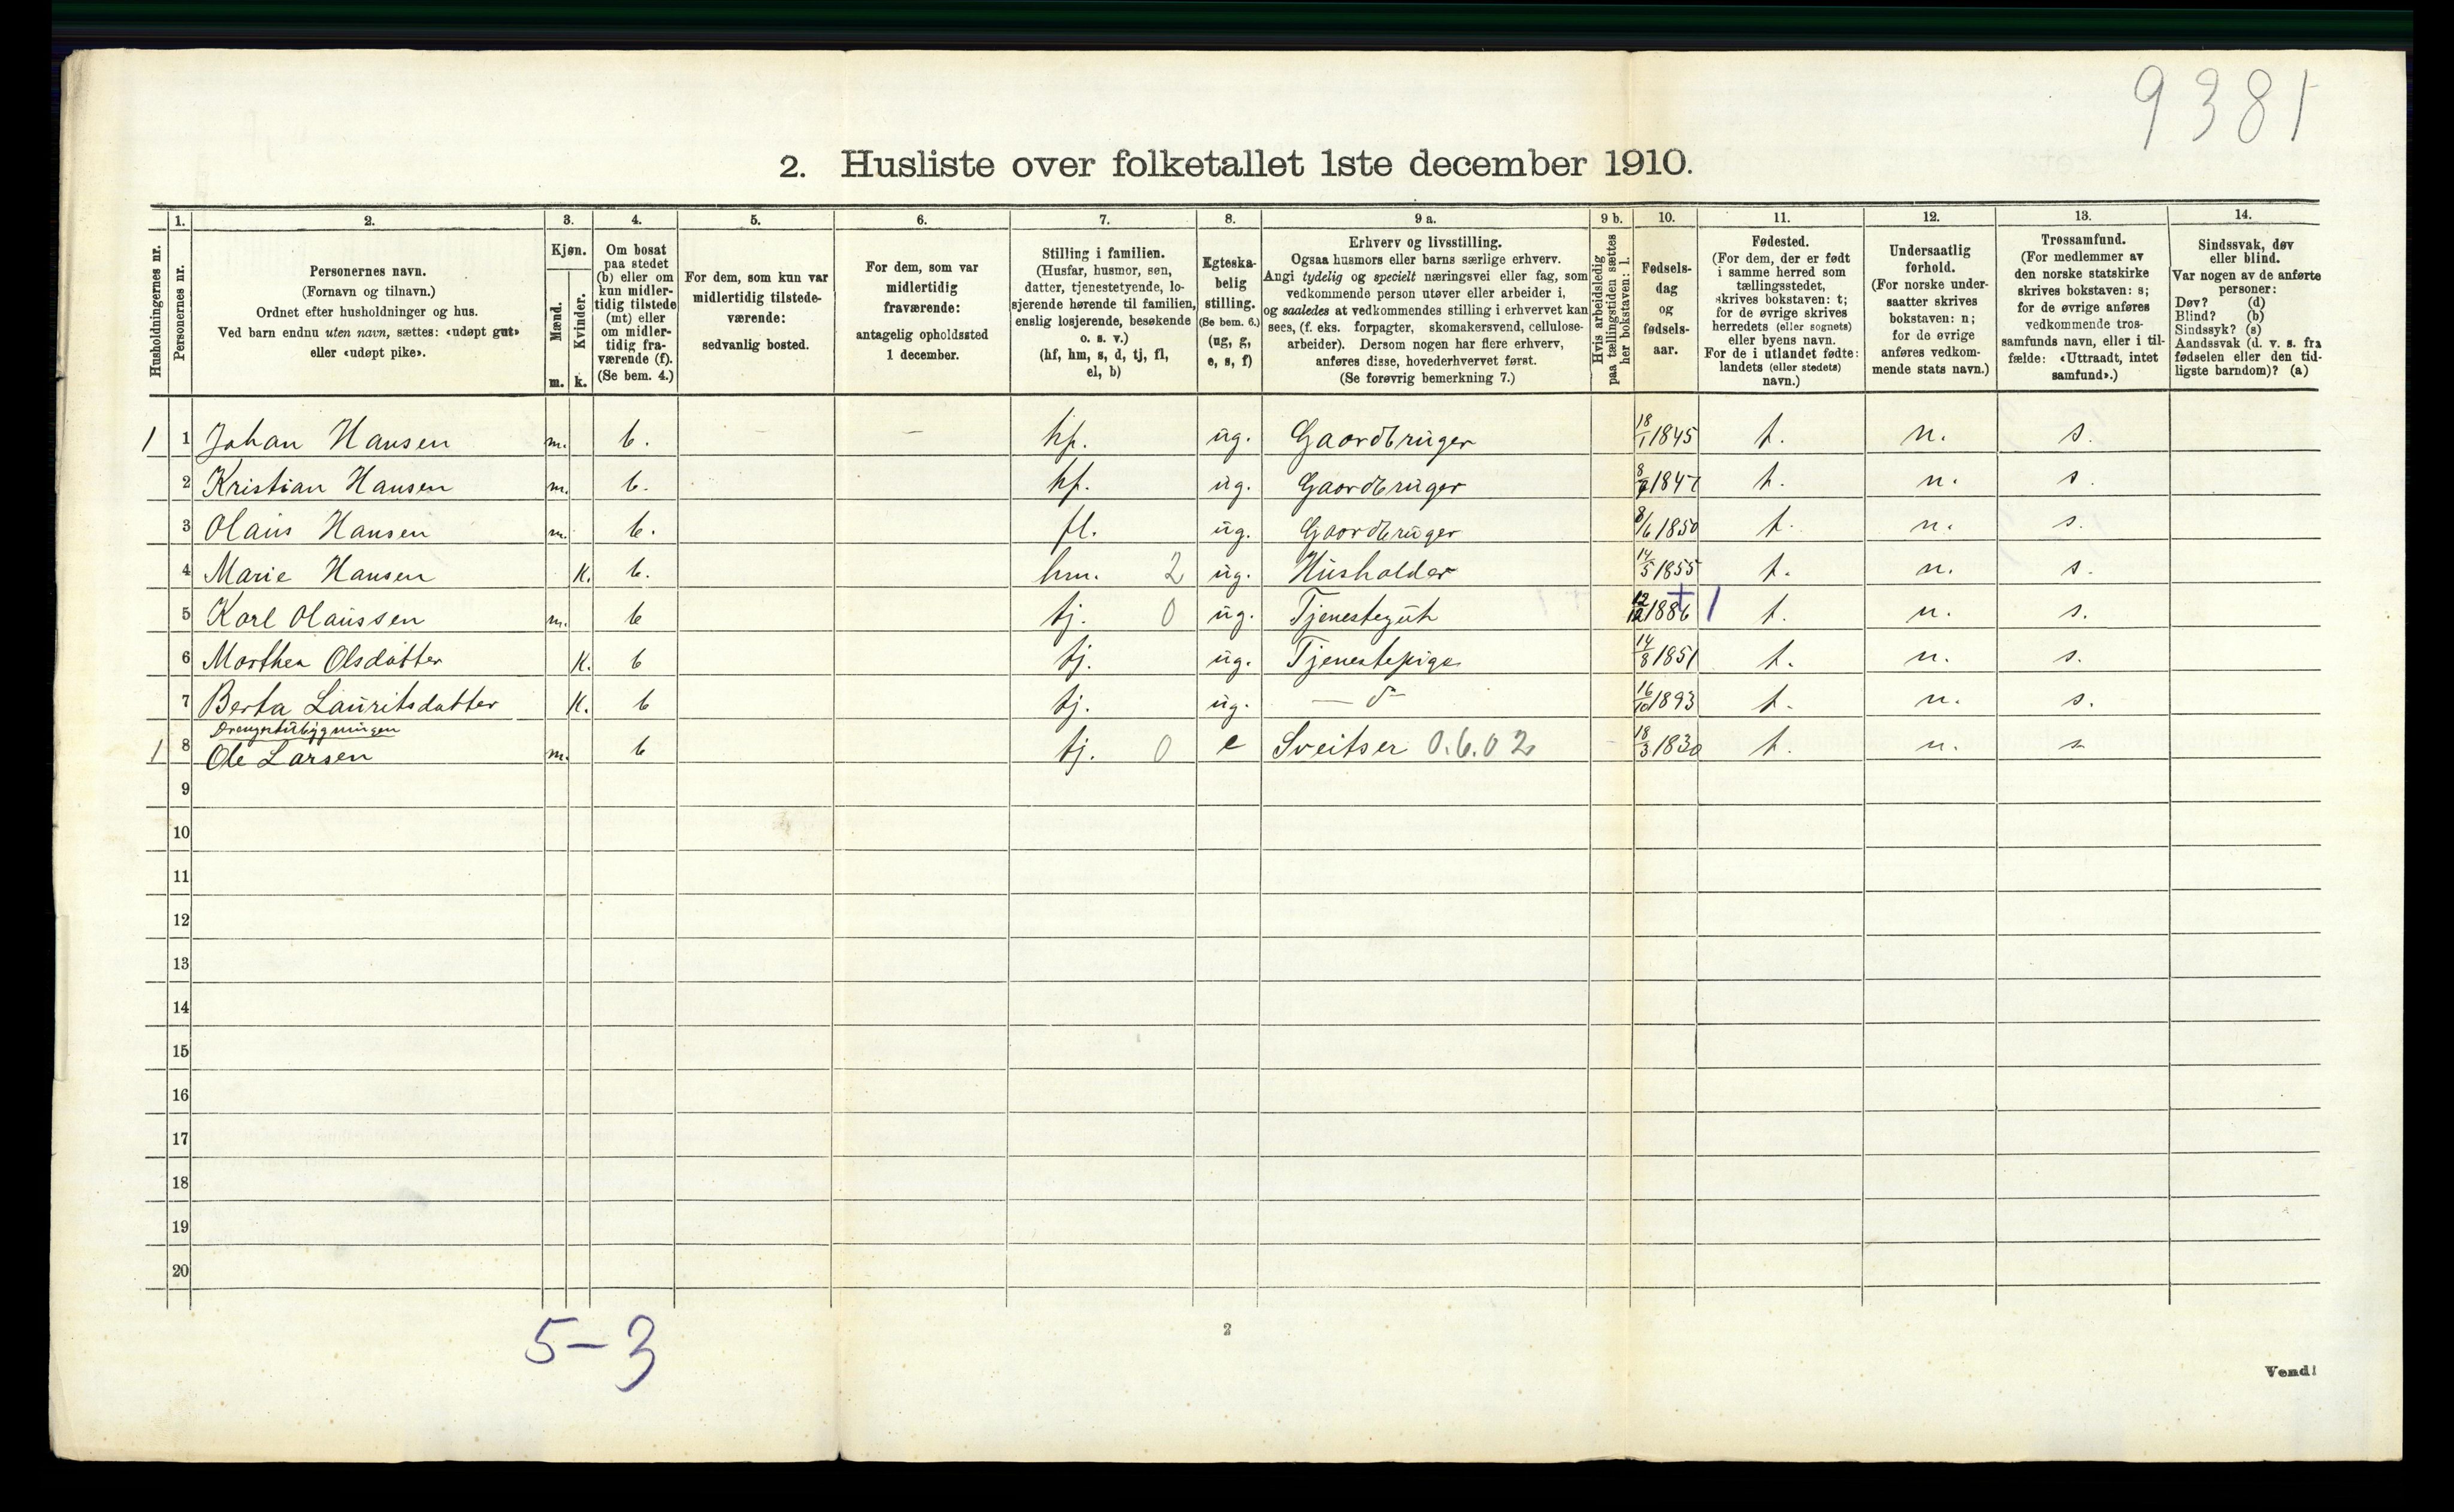 9381
2. Husliste over folketallet 1ste december 1910.
1. 2. 3. 4. 5. 6. 7. 8. 9 a. 9 b. 10. 11. 12. 13. 14.
Husholdningernes nr.
Personernes nr.
Personernes navn.
(Fornavn og tilnavn.)
Ordnet efter husholdninger og hus.
Ved barn endnu uten navn, sættes: «udøpt gut»
eller «udøpt pike».
Kjøn.
Mænd.
Kvinder.
m. k.
Om bosat
paa stedet
(b) eller om
kun midler-
tidig tilstede
(mt) eller
om midler-
tidig fra-
værende (f).
(Se bem. 4.)
For dem, som kun var
midlertidig tilstede-
værende:
sedvanlig bosted.
For dem, som var
midlertidig
fraværende:
antagelig opholdssted
1 december.
Stilling i familien.
(Husfar, husmor, søn,
datter, tjenestetyende, lo-
sjerende hørende til familien,
enslig losjerende, besøkende
o. s. v.)
(hf, hm, s, d, tj, fl,
el, b)
Egteska-
belig
stilling.
(Se bem. 6.)
(ug, g,
e, s, f)
Erhverv og livsstilling.
Ogsaa husmors eller barns særlige erhverv.
Angi tydelig og specielt næringsvei eller fag, som
vedkommende person utøver eller arbeider i,
og saaledes at vedkommendes stilling i erhvervet kan
sees, (f. eks. forpagter, skomakersvend, cellulose-
arbeider). Dersom nogen har flere erhverv,
anføres disse, hovederhvervet først.
(Se forøvrig bemerkning 7.)
Hvis arbeidsledig
paa tællingstiden sættes
her bokstaven: l.
Fødsels-
dag
og
fødsels-
aar.
Fødested.
(For dem, der er født
i samme herred som
tællingsstedet,
skrives bokstaven: t;
for de øvrige skrives
herredets (eller sognets)
eller byens navn.
For de i utlandet fødte:
landets (eller stedets)
navn.)
Undersaatlig
forhold.
(For norske under-
saatter skrives
bokstaven: n;
for de øvrige
anføres vedkom-
mende stats navn.)
Trossamfund.
(For medlemmer av
den norske statskirke
skrives bokstaven: s;
for de øvrige anføres
vedkommende tros-
samfunds navn, eller i til-
fælde: «Uttraadt, intet
samfund».)
Sindssvak, døv
eller blind.
Var nogen av de anførte
personer:
Døv? (d)
Blind? (b)
Sindssyk? (s)
Aandssvak (d. v. s. fra
fødselen eller den tid-
ligste barndom)? (a)
1 1 Johan Hansen m. b. — — hf. ug. Gaardbruger 18/1 1845 t. n. s.
2 Kristian Hansen m. b. hf. ug. Gaardbruger 1847 t. n. s.
3 Olaus Hansen m. b. fl. ug. Gaardbruger 8/6 1850 t. n. s.
4 Marie Hansen K. b. hm. 2 ug. Husholder 14/5 1855 t. n. s.
5 Karl Olaussen m. b tj. 0 ug. Tjenestegut 12/12 1886 t. n. s.
6 Marthea Olsdatter K. b tj. ug. Tjenestepige 14/8 1851 t. n. s.
7 Berta Lauritsdatter K. b tj. ug. — d— 16/10 1893 t. n. s.
Drengstubygningen
1 8 Ole Larsen m. b tj. 0 e Sveitser 0.6.02 18/3 1830 t. n. s
9
10
11
12
13
14
15
16
17
18
19
20
5-3
2
Vend!